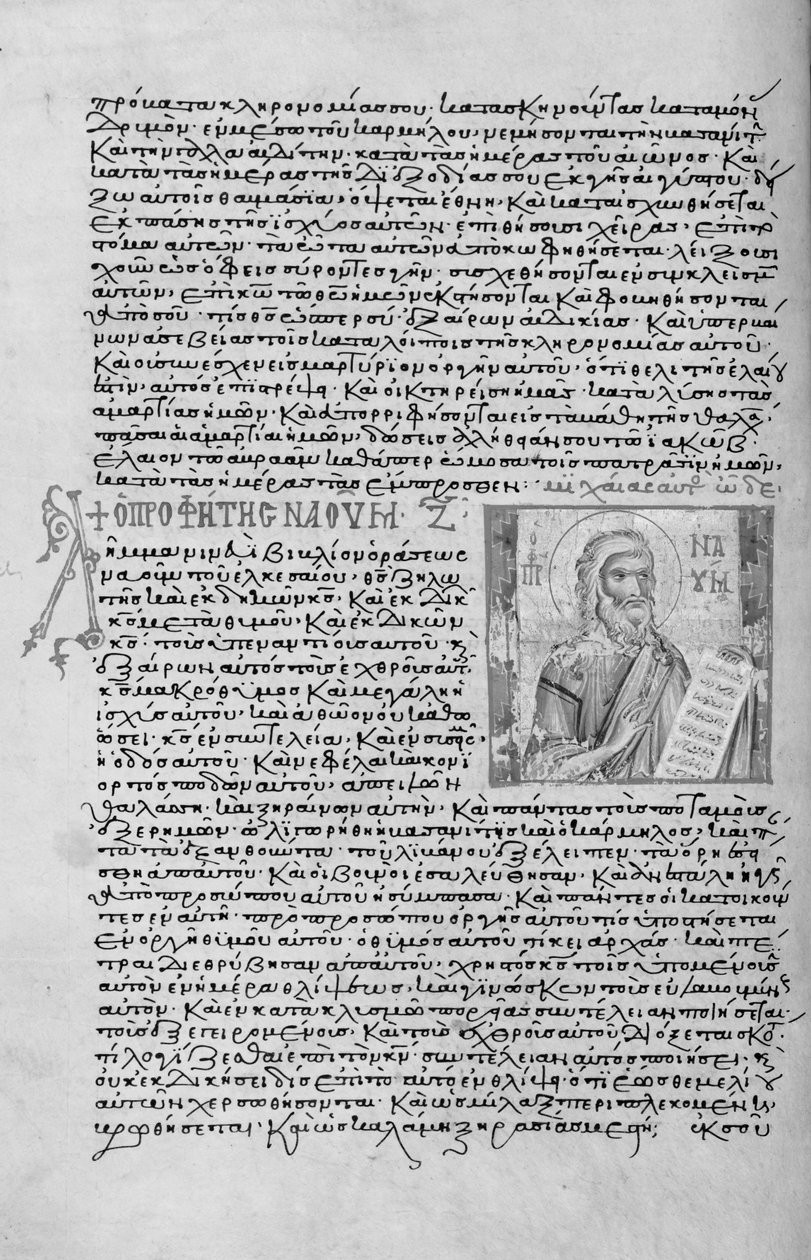 πρόβατα κληρονομίας σου· κατασκηνοῦντας καταμόν
δρυμὸν· ἐν μέσω τοῦ καρμήλου, νεμήσονται τὴν βασανίτην
καὶ τὴν γαλααδίτην· κατὰ τὰς ἡμέρας τοῦ αἰῶνος· καὶ
κατὰ τὰς ἡμέρας τῆς ἐξοδίας σου ἐξ αἰγύπτου·
αὐτοῖς θαυμάσια, ὄψεται ἔθνη, καὶ καταισχυνθήσεται
ἐκ πάσης τῆς ἰσχύος αὐτῶν· ἐπιθήσουσι χεῖρας, ἐπὶ τὸ
στόμα αὐτῶν· τὰ ὦτα αὐτῶν ἀποκωφηθήσεται· λείξουσι
χοῦν ὡς ὄφεις σύροντες γῆν· συσχεθήσονται ἐν συγκλεισμῶ
αὐτῶν, ἐπὶ κω τῶ θεῶ ἡμῶν ἐκστήσονται καὶ φοβηθήσονται
ἀπὸ σοῦ· τίς θς ὥσπερ σύ· ἐξαίρων ἀδικίας· καὶ ὑπερβαί
νων ἀσεβείας τοῖς καταλοίποις τῆς κληρονομίας αὐτοῦ·
καὶ οὐ συνέσχεν εἰς μαρτύριον ὀργὴν αὐτοῦ, ὅτι θελητὴς ἐλέου
ἐστὶν, αὐτὸς ἐπιστρέψει· καὶ οἰκτειρήσει ἡμᾶς· καταδύσει τὰς
ἁμαρτίας ἡμῶν· καὶ ἀπορριφήσονται εἰς τὰ βάθη τῆς θαλάσσης
πᾶσαι αἱ ἁμαρτίαι ἡμῶν, δώσεις ἀλήθειάν σου τῶ ἰακώβ·
ἔλαιον τῶ ἀβραὰμ καθάπερ ὤμοσα τοῖς πατράσιν ἡμῶν,
κατὰ τὰς ἡμέρας τὰς ἔμπροσθεν: μιχαίας
+ ὁ προφήτης ναούμ· ζ
λῆμμα νινευῒ βιβλίον ὁράσεως
ναοὺμ τοῦ ἐλκεσαίου, θς ζηλω
τὴς καὶ ἐκδικῶν κς· καὶ ἐκδικῶν
κς μετὰ θυμοῦ, καὶ ἐκδικῶν
κς· τοὺς ὑπεναντίους αὐτοῦ· καὶ
ἐξαίρων αὐτὸς τοὺς ἐχθροὺς αὐτοῦ·
κς μακρόθυμος καὶ μεγάλη ἡ
ἰσχὺς αὐτοῦ, καὶ ἀθῶον οὐκ ἀθω
ώσει· κς ἐν συντελεία, καὶ ἐν συσσεισμῶ
ἡ ὁδὸς αὐτοῦ· καὶ νεφέλαι κονι
ορτὸς ποδῶν αὐτοῦ, ἀπειλῶν
ὁ πρ ΝΑΟΥΜ
θαλάσση· καὶ ξηραίνων αὐτὴν, καὶ πάντας τοὺς ποταμοὺς
ἐξερημῶν· ὠλιγωρήθη ἡ βασανίτης καὶ ὁ κάρμηλος, καὶ
τὰ ἐξανθοῦντα· τοῦ λιβάνου ἐξέλειπεν· τὰ ὄρη
σθη ἀπ' αὐτοῦ· καὶ οἱ βουνοὶ ἐσαλεύθησαν, καὶ ἀνεστάλη ἡ γῆ
ἀπὸ προσώπου αὐτοῦ ἡ σύμπασα· καὶ πάντες οἱ κατοικοῦν
τες ἐν αὐτῆ· πρὸ προσώπου ὀργῆς αὐτοῦ τίς ὑποστήσεται
ἐν ὀργῆ θυμοῦ αὐτοῦ· ὁ θυμὸς αὐτοῦ τήκει ἀρχάς· καὶ πέ
τραι διεθρύβησαν ἀπ' αὐτοῦ, χρηστὸς κς τοῖς ὑπομένουσιν
αὐτὸν ἐν ἡμέρα θλίψεως, καὶ γινώσκων τοὺς εὐλαβουμένους
αὐτὸν· καὶ ἐν κατακλυσμῶ πορείας συντέλειαν ποιήσεται·
τοὺς ἐπεγειρομένους, καὶ τοὺς ἐχθροὺς αὐτοῦ, διώξεται σκότος·
τί λογίζεσθαι ἐπὶ τὸν κν· συντέλειαν αὐτὸς ποιήσει· καὶ
οὐκ ἐκδικήσει δὶς ἐπὶ τὸ αὐτὸ ἐν θλίψει· ὅτι ἕως θεμελίου
αὐτῶν χερσωθήσονται· καὶ ὡς μίλαξ περιπλεκομένη
βρωθήσεται· καὶ ὡς καλάμη ξηρασίας μεστή; ἐκ σοῦ